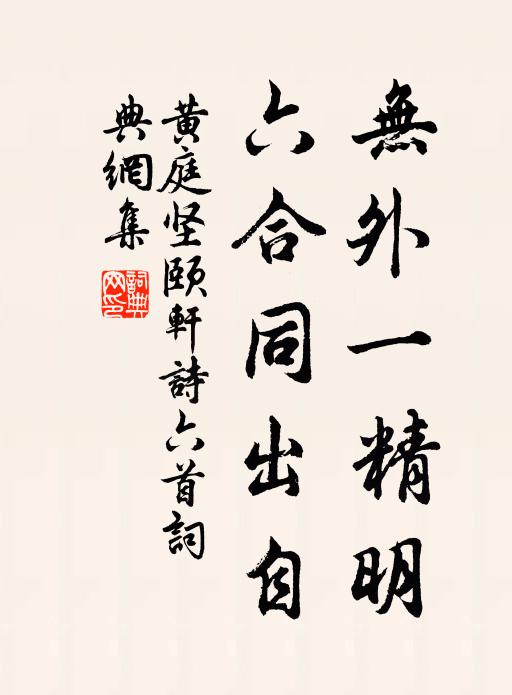 無外一精明
六合同出自
黄庭坚頤軒詩六首詞
典網集
詞典网印